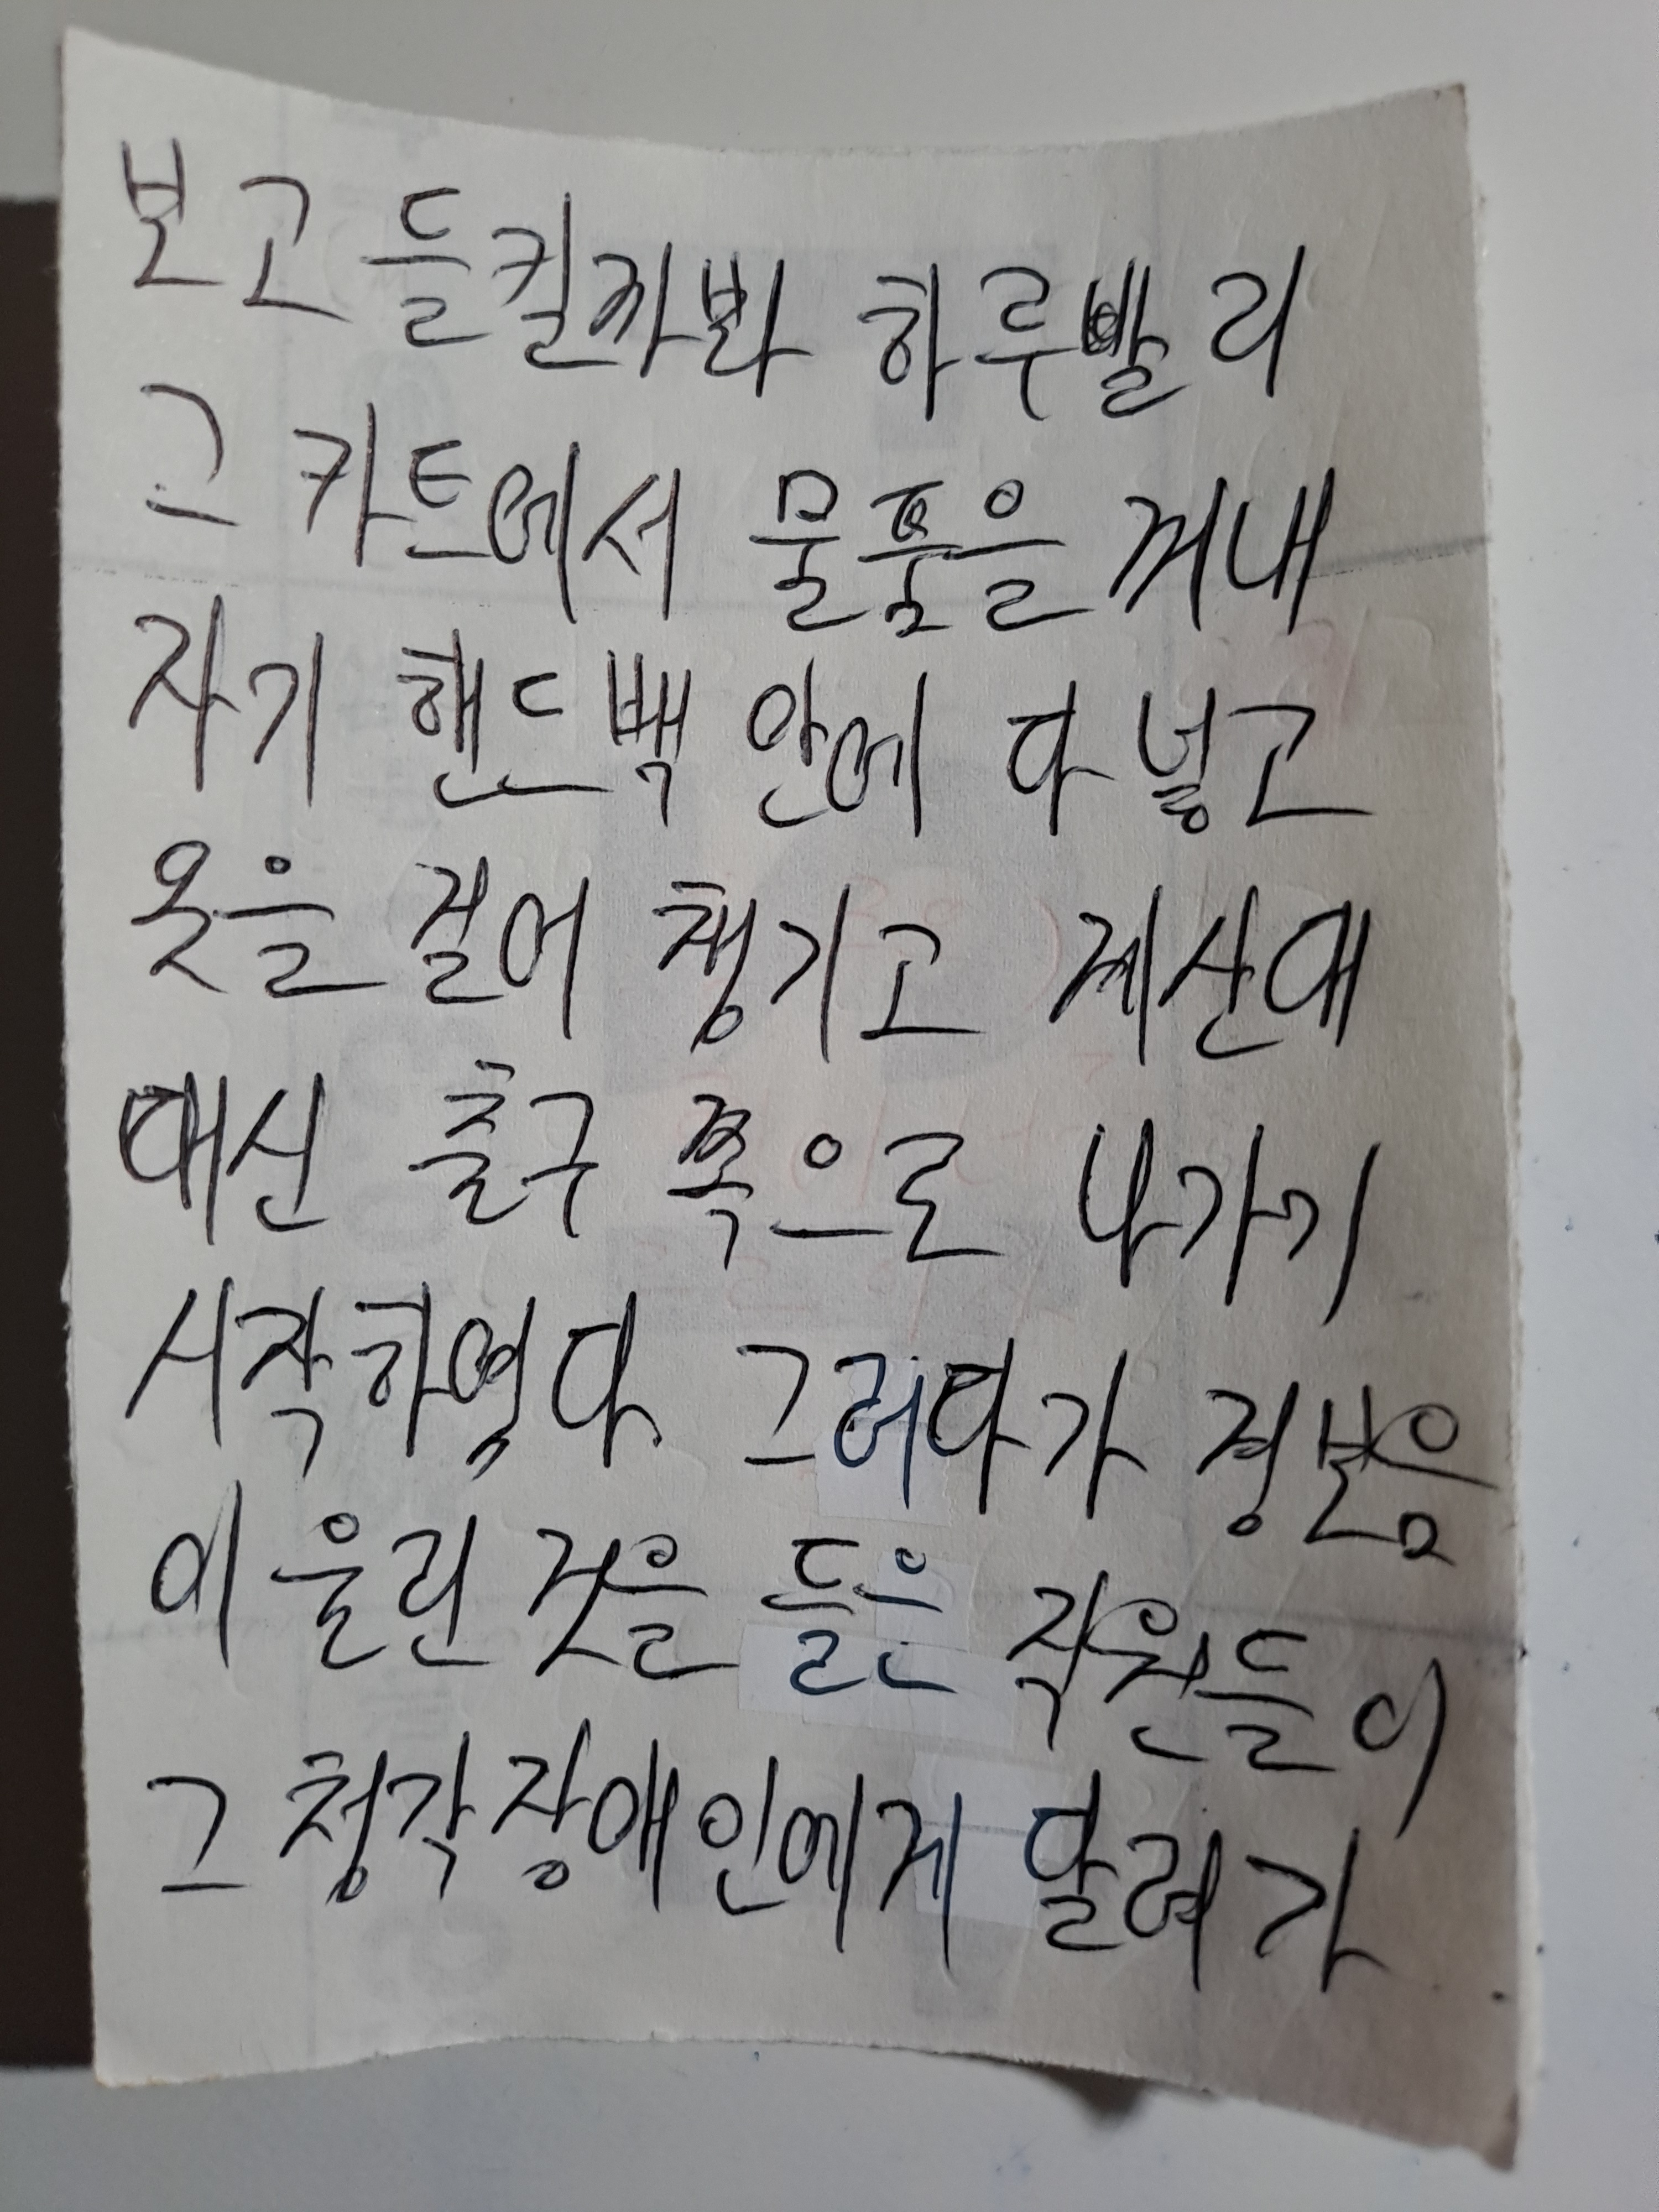 보고 들킬까봐 하루빨리
그 카트에서 물품을 꺼내
자기 핸드백 안에 다 넣고
옷을 걸어 챙기고 계산대
대신 출구 쪽으로 나가기
시작하였다. 그러다가 경보음
이 울린 것을 들은 직원들이
그 청각장애인에게 달려가